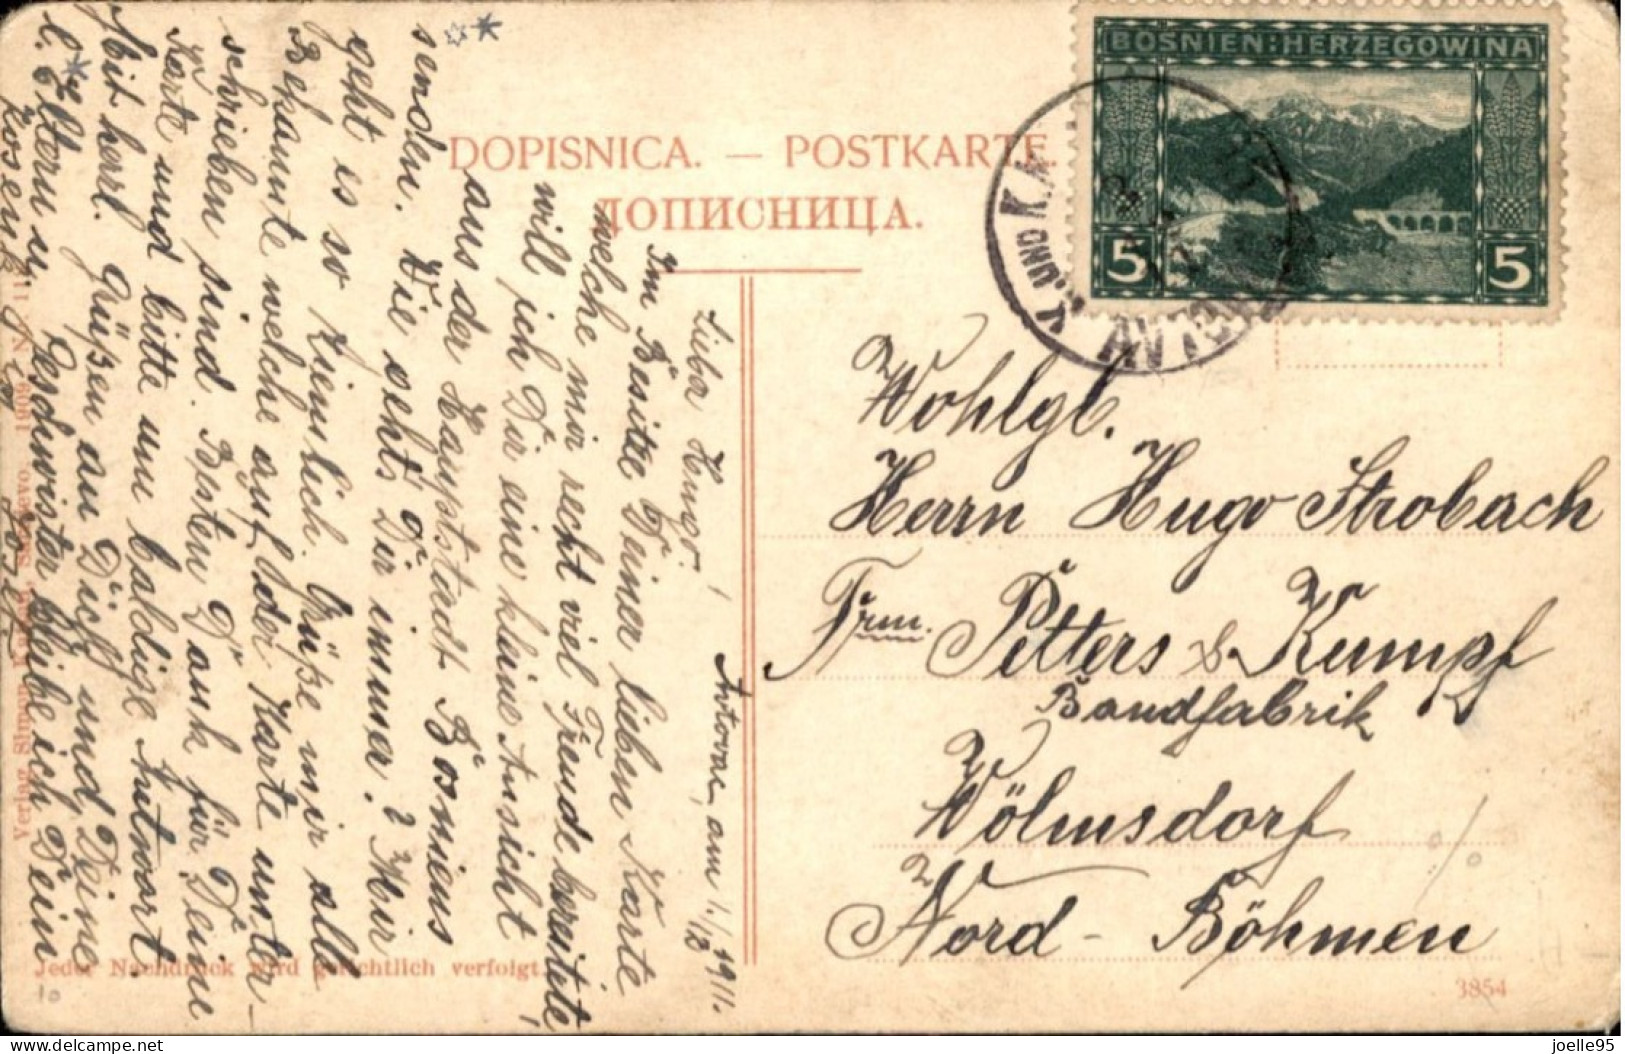 BOSNIEN:HERZEGOWINA
5 5
K. UND K. M
AVTOVAC
DOPISNICA. — POSTKARTE.
ДОПИСНИЦА.
Avtovac, am 1./12 1911.
Lieba Hugo!
Im Besitte Deiner lieben Karte
welche mir recht viel Freude bereitete,
will ich Dir eine kleine Ansicht
aus der Hauptstadt Bosniens
senden. Wie geht's Dir immer? Mir
geht es so ziemlich. Grüße mir alle
Bekannte welche auf der Karte unter-
schrieben sind. Besten Dank für Deine
Karte und bitte um baldige Antwort.
Mit herzl. Grüßen an Dich und Deine
l. Eltern u. Geschwister bleibe ich Dein
Josef
Wohlgb.
Herrn Hugo Strobach
Frm. Petters & Kumpf
Bandfabrik
Wölmsdorf
Nord - Böhmen
Verlag Simon Sarajevo. 1909. N.
Jeder Nachdruck wird gerichtlich verfolgt.
3854
10
delcampe.net
joelle95